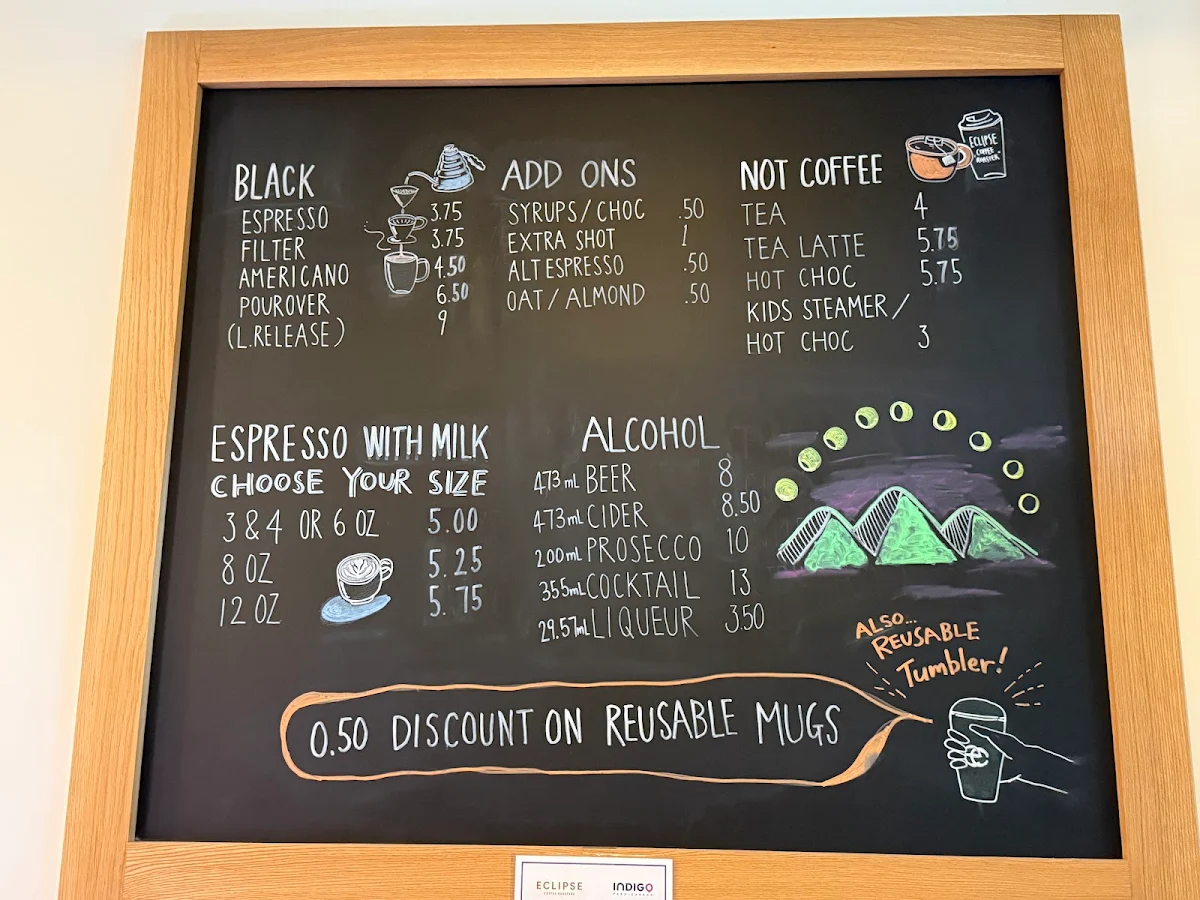 BLACK
ESPRESSO 3.75
FILTER 3.75
AMERICANO 4.50
POUROVER 6.50
(L.RELEASE) 9
ADD ONS
SYRUPS/CHOC .50
EXTRA SHOT 1
ALT ESPRESSO .50
OAT/ALMOND .50
NOT COFFEE
TEA 4
TEA LATTE 5.75
HOT CHOC 5.75
KIDS STEAMER/
HOT CHOC 3
ECLIPSE
COFFEE
ROASTER
ESPRESSO WITH MILK
CHOOSE YOUR SIZE
3 & 4 OR 6 OZ 5.00
8 OZ 5.25
12 OZ 5.75
ALCOHOL
473mL BEER 8
473mL CIDER 8.50
200mL PROSECCO 10
355mL COCKTAIL 13
29.57mL LIQUEUR 3.50
ALSO...
REUSABLE
Tumbler!
0.50 DISCOUNT ON REUSABLE MUGS
ECLIPSE
INDIGO